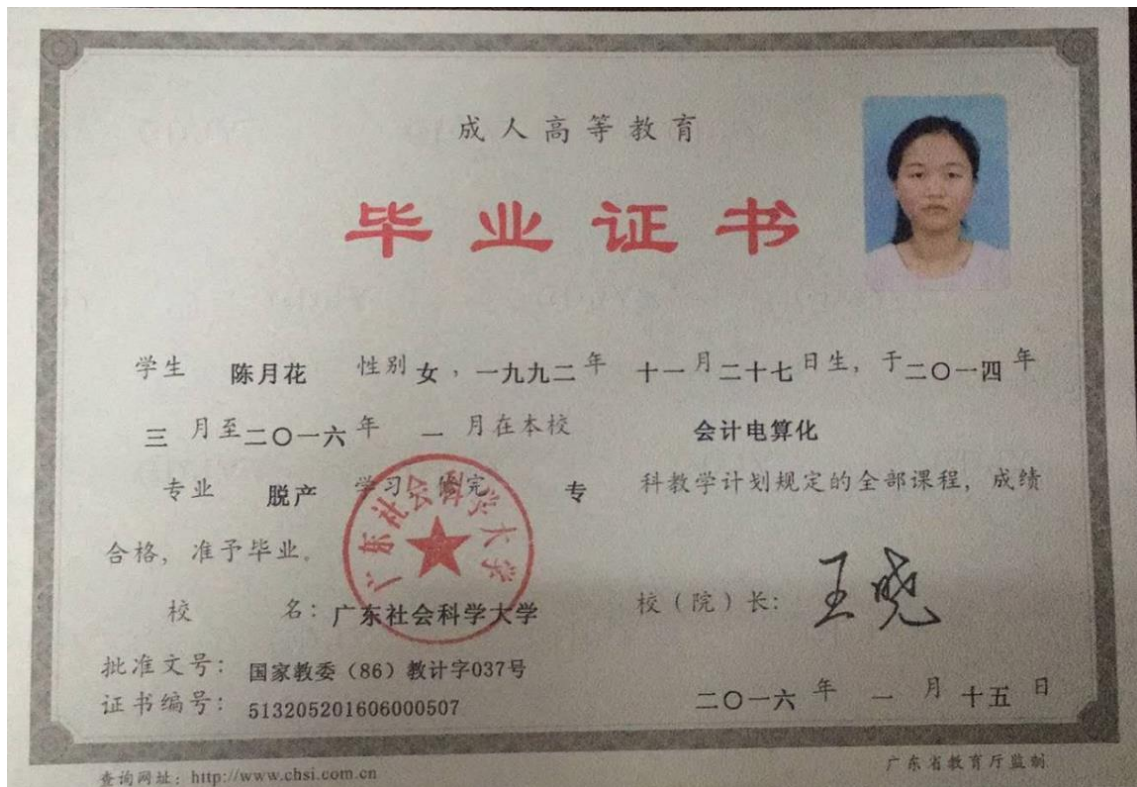 成人高等教育
毕业证书
学生 陈月花 性别 女，一九九二 年 十一 月 二十七 日生，于 二〇一四 年
三 月至 二〇一六 年 一 月在本校 会计电算化
专业 脱产 学习，修完 专 科教学计划规定的全部课程，成绩
合格，准予毕业。
广东社会科学大学
校 名：广东社会科学大学 校（院）长：王晓
批准文号：国家教委（86）教计字037号
证书编号：513205201606000507 二〇一六 年 一 月 十五 日
查询网址：http://www.chsi.com.cn 广东省教育厅监制